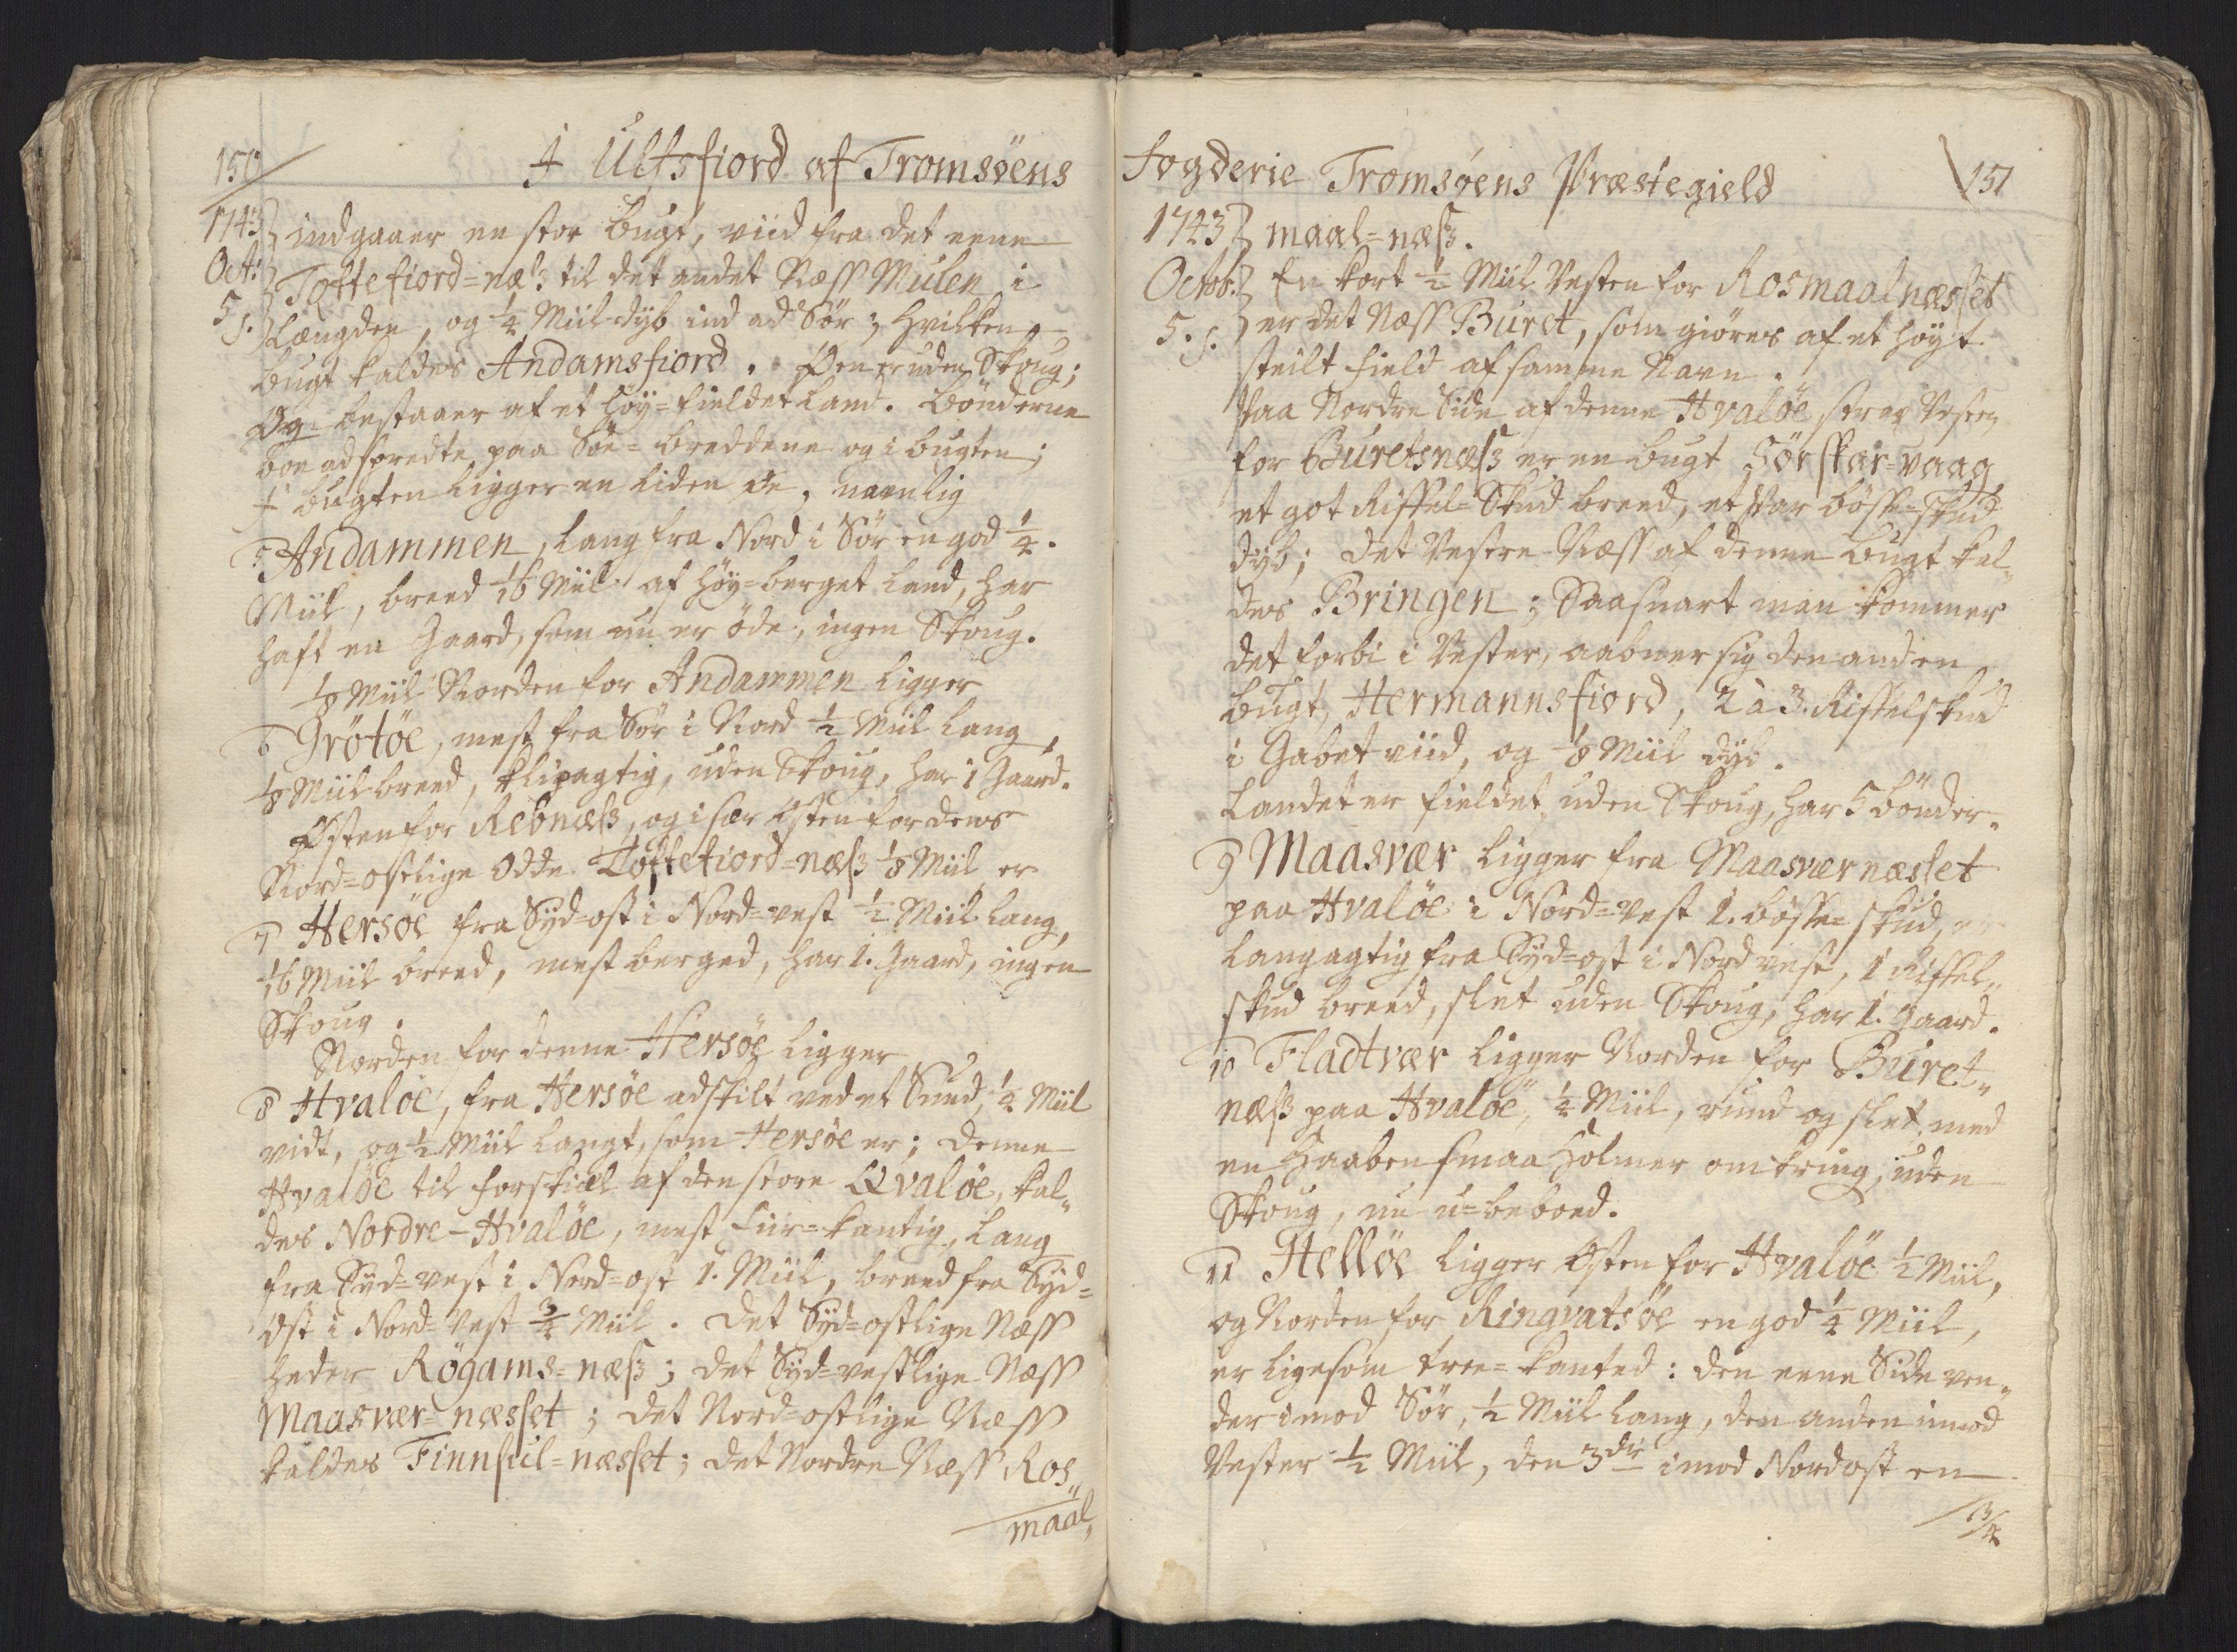 150
I Ulfsfiord af Tromsöens
1743 indgaaer en stor bugt, viid fra det eene
Oct: Toftefiord=næss til det andet Næss Mulen i
5 s. Længden, og 1/4 Miil dyb ind ad Sör; hvilken
bugt kaldes Andamsfiord. Øen er uden Skoug;
Og bestaaer af et höy=fieldet Land. Bönderne
boe adspredte paa Söe=breddene og i bugten;
I bugten ligger en liden Øe, navnlig
5 Andammen, lang fra Nord i Sör en god 1/4.
Miil, breed 1/16 Miil af höy=berget Land, har
haft en Gaard, som nu er öde, ingen Skoug.
1/8 Miil Norden for Andammen ligger
6 Grötöe, mest fra Sör i Nord 1/2 Miil lang,
1/8 Miil breed, klipagtig, uden Skoug, har 1 Gaard.
Østen for Rebnæss, og især Østen for dens
Nord=ostlige Odde Toftefiord=næss 1/8 Miil er
7 Hersöe fra Syd=ost i Nord=vest 1/2 Miil lang,
1/16 Miil breed, mest berged, har 1. Gaard, ingen
Skoug.
Norden for denne Hersöe ligger
8 Hvalöe, fra Hersöe adskilt ved et Sund, 1/4 Miil
vidt, og 1/2 Miil langt, som Hersöe er; denne
Hvalöe til forskiæl af den store Qvalöe, kal„
des Nordre-Hvalöe, mest fiir=kantig, lang
fra Syd=vest i Nord=ost 1. Miil, breed fra Syd=
Ost i Nord=Vest 3/4 Miil. Det Syd=ostlige Næss
heder Rögams=næss; det Syd=vestlige Næss
Maasvær=næsset; det Nord=ostlige Næss
kaldes Finnsul=næsset; det Nordre Næss Ros„
maal„
Fogderie Tromsöens Præstegield
151
1743 maal=næss.
Octob. En kort 1/2 Miil Vesten for Rosmaalnæsset
5. s. er det Næss Buret, som giöres af et höyt
steilt field af samme Navn.
Paa Nordre Side af denne Hvalöe, strax Vesten
for Buretsnæss er en bugt Sörskar=vaag
et got Riffel=Skud breed, et par bösse=skud
dyb; det Vestre Næss af denne bugt kal„
des Bringen; Saasnart man kommer
det forbi i Vester, aabner sig den anden
bugt, Hermannsfiord, 2 à 3. Riffelskud
i Gabet viid, og 1/8 Miil dyb.
Landet er fieldet, uden Skoug, har 5 bönder.
9 Maasvær ligger fra Maasværnæsset
paa Hvalöe i Nord=vest 1. bösse=skud,
langagtig fra Syd=ost i Nordvest, 1 Riffel„
skud breed, slet uden Skoug, har 1. Gaard.
10 Fladtvær ligger Norden for Buret„
næss paa Hvalöe, 1/4 Miil, rund og slet, med
en Haaben smaa Holmer omkring, uden
Skoug, nu u=beboed.
11 Hellöe ligger Østen for Hvalöe 1/2 Miil,
og Norden for Ringvatsöe en god 1/4 Miil,
er ligesom tree=kanted: den eene Side ven„
der imod Sör, 1/2 Miil lang, den anden imod
Vester 1/2 Miil, den 3die imod Nordost en
3/4